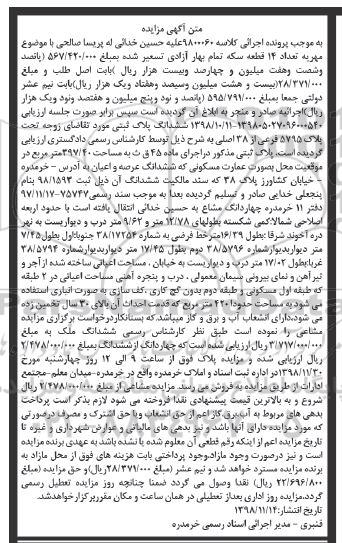 متن آگهی مزایده
به موجب پرونده اجرائی کلاسه ۹۸۰۰۰۶۰ علیه حسین خدائی له پریسا صالحی با موضوع
مهریه تعداد ۱۴ قطعه سکه تمام بهار آزادی تسعیر شده بمبلغ ۵۶۷/۴۲۰/۰۰۰ (پانصد
وشصت وهفت میلیون و چهارصد وبیست هزار ریال )بابت اصل طلب و مبلغ
۲۸/۳۷۱/۰۰۰(بیست و هشت میلیون وسیصد وهفتاد ویک هزار ریال)بابت نیم عشر
دولتی جمعا بمبلغ ۵۹۵/۷۹۱/۰۰۰ (پانصد و نود وپنج میلیون و هفتصد ونود ویک هزار
ریال)اجرائیه صادر و منجر به ابلاغ آن گردیده است سپس برابر صورت جلسه ارزیابی
۱۳۹۸/۱۰/۱۱-۱۳۹۸۰۵۰۲۷۰۹۶۰۰۰۵۴۰ ششدانگ پلاک ثبتی مورد تقاضای زوجه تحت
پلاک ۵۷۹۵ فرعی از ۳۸ اصلی به شرح ذیل توسط کارشناس رسمی دادگستری ارزیابی
گردیده است. پلاک ثبتی مذکور دراجرای ماده ۴۵ ق ث به مساحت ۳۹۷/۴۰متر مربع در
موقعیت محل بصورت عمارت مسکونی که ششدانگ عرصه و اعیان به آدرس - خرمدره
- خیابان کشاورز پلاک ۳۸ که سند مالکیت ششدانگ آن ذیل ثبت ۹۸/۱۵۹۳ بنام
پنجعلی خدایی صادر و تسلیم گردیده بعداً به موجب سند رسمی ۷۵۷۴۷-۹۷/۱۱/۱۷
دفتر ۱۱ خرمدره چهاردانگ مشاع به حسین خدائی انتقال یافته است با حدود اربعه
اصلاحی شمالا:کمی شکسته بطولهای ۱۲/۷۸ متر و ۹/۶۲ متر درب و دیواریست به نهر
دره آخوند شرقا:بطول ۱۶/۳۹متر خط فرضی به شماره ۳۸/۱۷۲۵۴ جنوبا:اول بطول ۷/۴۵
متر دیواربدیوارشماره ۳۸/۵۷۹۶ دوم بطول ۱۷/۴۵ متر دیواربدیوارشماره ۳۸/۵۷۹۴
غربا:بطول ۱۷/۰۲ متر درب و دیواریست به خیابان . مساحت اعیانی ساخته شده از آجر و
تیر آهن و نمای بیرونی سیمان معمولی . درب و پنجره آهنی مساحت اعیانی در ۲ طبقه
که طبقه اول مسکونی و طبقه دوم بدون گچ کاری .کف سازی به صورت انباری استفاده
می شود به مساحت حدودا ۴۲۰ متر مربع که قدمت احداث آن بالای ۳۰ سال تخمین زده
می شود.دارای انشعاب آب و برق و گاز میباشد.که بستانکاردرخواست برگزاری مزایده
مشاعی را نموده است طبق نظر کارشناس رسمی ششدانگ ملک به مبلغ
۳/۷۱۷/۰۰۰/۰۰۰ ریال ارزیابی شده است که چهاردانگ از ششدانگ بمبلغ ۲/۴۷۸/۰۰۰/۰۰۰
ریال ارزیابی شده و مزایده پلاک فوق از ساعت ۹ الی ۱۲ روز چهارشنبه مورخ
۱۳۹۸/۱۱/۳۰در اداره ثبت اسناد و املاک خرمدره واقع در خرمدره-میدان معلم-مجتمع
ادارات از طریق مزایده به فروش می رسد. مزایده مشاعی از مبلغ ۲/۴۷۸/۰۰۰/۰۰۰ ریال
شروع و به بالاترین قیمت پیشنهادی نقدا فروخته می شود لازم بذکر است پرداخت
بدهی های مربوط به آب،برق،گاز اعم از حق انشعاب ویا حق اشتراک و مصرف درصورتی
که مورد مزایده دارای آنها باشد و نیز بدهی های مالیاتی و عوارض شهرداری و غیره تا
تاریخ مزایده اعم از اینکه رقم قطعی آن معلوم شده یا نشده باشد به عهده برنده مزایده
است و نیز درصورت وجود مازاد،وجوه پرداختی بابت هزینه های فوق از محل مازاد به
برنده مزایده مسترد خواهد شد و نیم عشر (مبلغ ۲۸/۳۷۱/۰۰۰ریال)و حق مزایده (مبلغ
۲۲/۶۹۶/۸۰۰ ریال) نقدا وصول می گردد ضمنا چنانچه روز مزایده تعطیل رسمی
گردد،مزایده روز اداری بعداز تعطیلی در همان ساعت و مکان مقرربرگزار خواهدشد.
تاریخ انتشار:۱۳۹۸/۱۱/۱۴
قنبری - مدیر اجرائی اسناد رسمی خرمدره